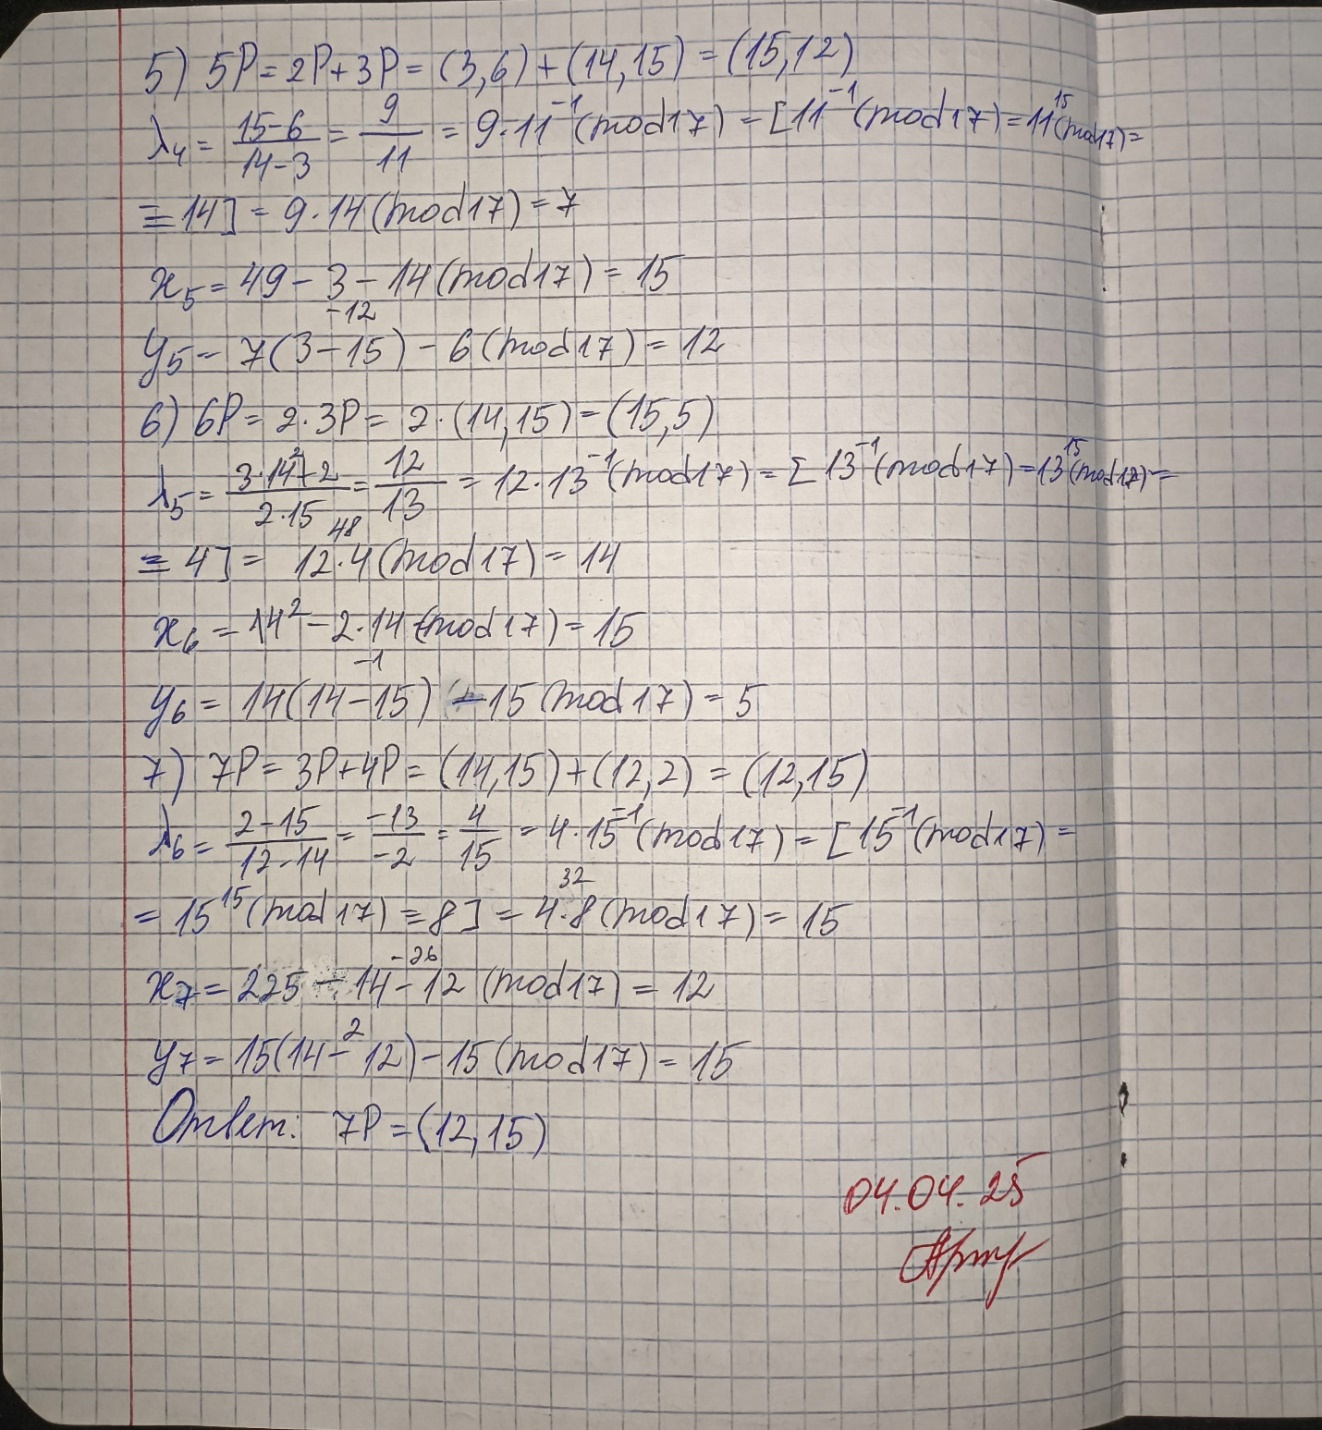 5) 5P = 2P + 3P = (3,6) + (14,15) = (15,12)
λ₄ = (15-6)/(14-3) = 9/11 = 9·11⁻¹(mod17) = [11⁻¹(mod17) = 11¹⁵(mod17) =
= 14] = 9·14(mod17) = 7
x₅ = 49 - 3 - 14(mod17) = 15
-12
y₅ = 7(3-15) - 6(mod17) = 12
6) 6P = 2·3P = 2·(14,15) = (15,5)
λ₅ = (3·14²+2)/(2·15) = 12/13 = 12·13⁻¹(mod17) = [13⁻¹(mod17) = 13¹⁵(mod17) =
48
= 4] = 12·4(mod17) = 14
x₆ = 14² - 2·14(mod17) = 15
-1
y₆ = 14(14-15) - 15(mod17) = 5
7) 7P = 3P + 4P = (14,15) + (12,2) = (12,15)
λ₆ = (2-15)/(12-14) = -13/-2 = 4/15 = 4·15⁻¹(mod17) = [15⁻¹(mod17) =
32
= 15¹⁵(mod17) = 8] = 4·8(mod17) = 15
-26
x₇ = 225 - 14 - 12 (mod17) = 12
2
y₇ = 15(14-12) - 15(mod17) = 15
Ответ: 7P = (12,15)
04.04.25